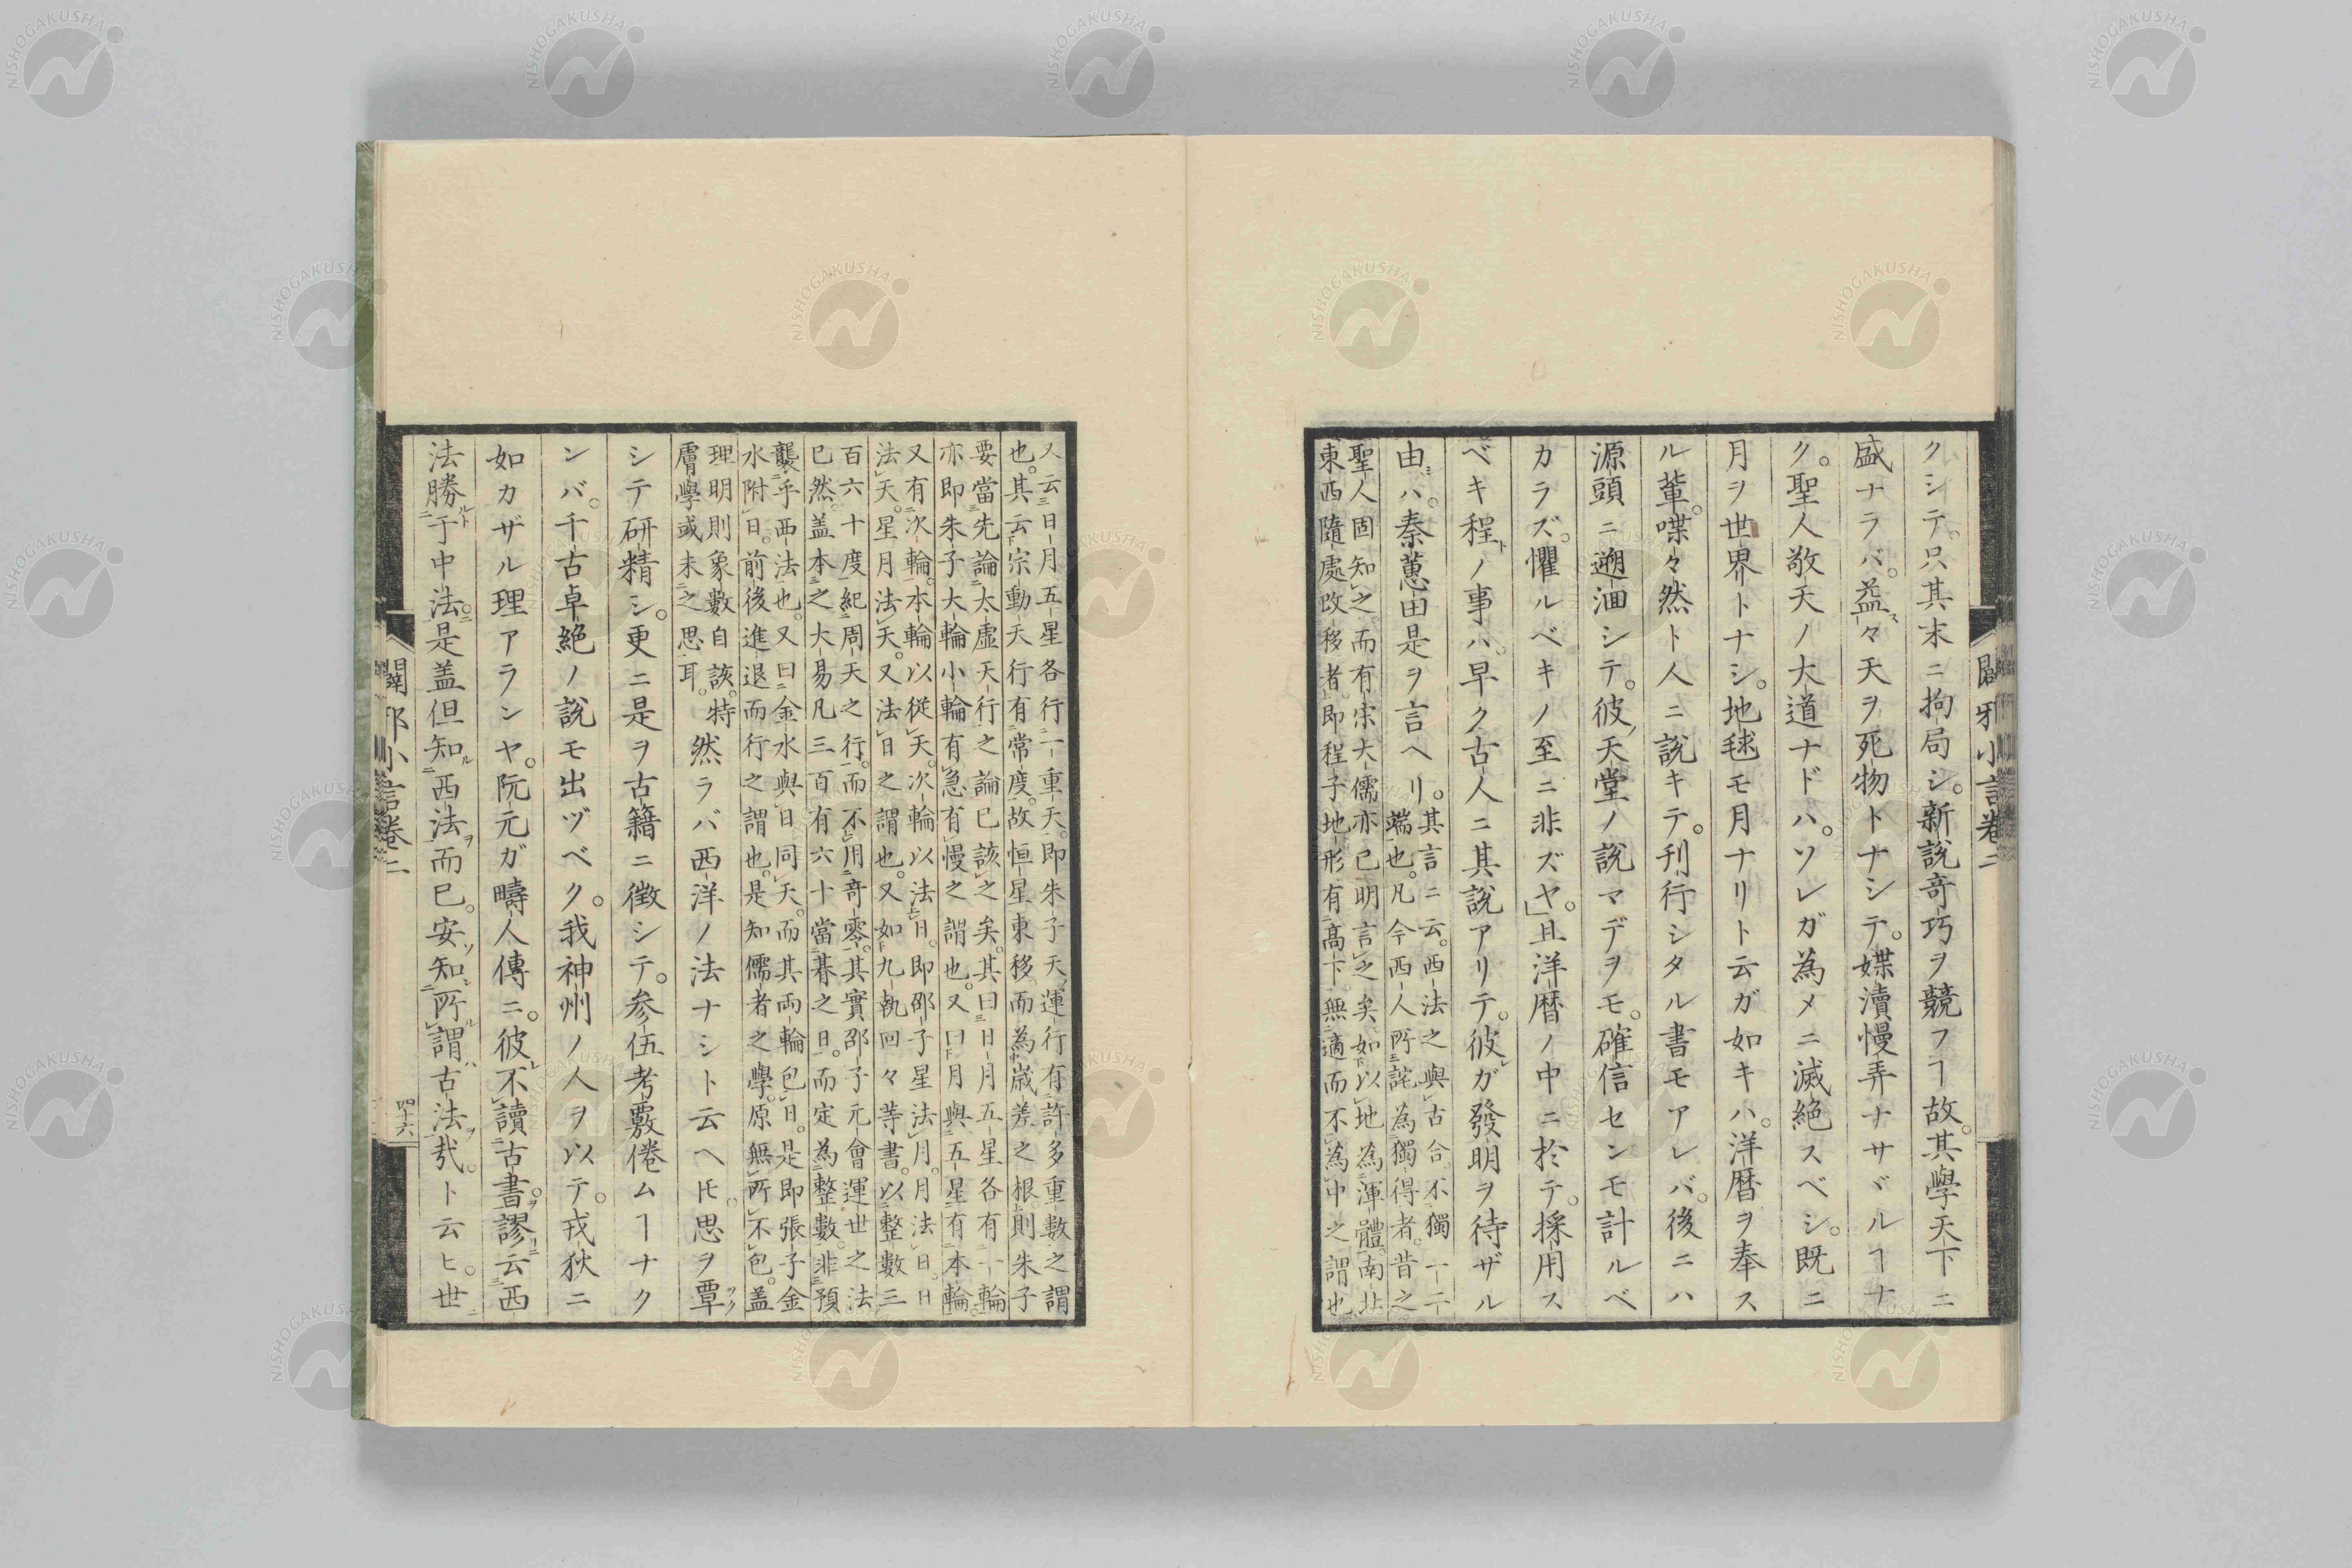 クシテ。只其末ニ拘局シ。新說奇巧ヲ競フヿ故。其學天下ニ
盛ナラバ。益々天ヲ死物トナシテ。媟瀆慢弄ナサヾルヿナ
ク。聖人敬天ノ大道ナドハ。ソレガ為メニ滅絕スベシ。既ニ
月ヲ世界トナシ。地毬モ月ナリト云ガ如キハ。洋暦ヲ奉ス
ル輩。喋々然ト人ニ說キテ。刋行シタル書モアレバ。後ニハ
源頭ニ遡洄シテ。彼天堂ノ說マデヲモ。確信センモ計ルベ
カラズ。懼ルベキノ至ニ非ズヤ。且洋暦ノ中ニ於テ。採用ス
ベキ程ノ事ハ。早ク古人ニ其說アリテ。彼ガ發明ヲ待ザル
由ハ。秦蕙田是ヲ言ヘリ。
其言ニ云。西法之與古合不獨一二
端也。凡今西人所詫為獨得者。昔之
聖人固知之。而有宋大儒亦已明言之矣。如以地為渾體。南北
東西隨處改移者。卽程子地形有高下。無適而不為中之謂也
又云日月五星各行一重天。卽朱子天運行有許多重數之謂
也。其云宗動天行有常度。故恒星東移而為歲差之根。則朱子
要當先論太虛天行之論已該之矣。其曰日月五星各有一輪
亦卽朱子大輪小輪有急有慢之謂也。又曰月與五星有本輪
又有次輪。本輪以從天。次輪以法日。卽邵子星法月。月法日。日
法天。星月法天。又法日之謂也。又如九執回々等書。以整數三
百六十度紀周天之行。而不用奇零。其實邵子元會運世之法
已然。盖本之大易凡三百有六十當朞之日。而定為整數。非預
襲乎西法也。又曰金水與日同天。而其兩輪包日。是卽張子金
水附日。前後進退而行之謂也。是知儒者之學。原無所不包。盖
理明則象數自該。特
膚學或未之思耳。
然ラバ西洋ノ法ナシト云ヘ𪜈。思ヲ覃
シテ研精シ。更ニ是ヲ古籍ニ徵シテ。參伍考覈倦ムヿナク
ンバ。千古卓絕ノ說モ出ヅベク。我神州ノ人ヲ以テ。戎狄ニ
如カザル理アランヤ。阮元ガ疇人傳ニ。彼不讀古書。謬云西
法勝于中法。是盖但知西法而已。安知所謂古法㢤。ト云ヒ。世
闢邪小言卷二
闢邪小言卷二
四十六
NISHOGAKUSHA